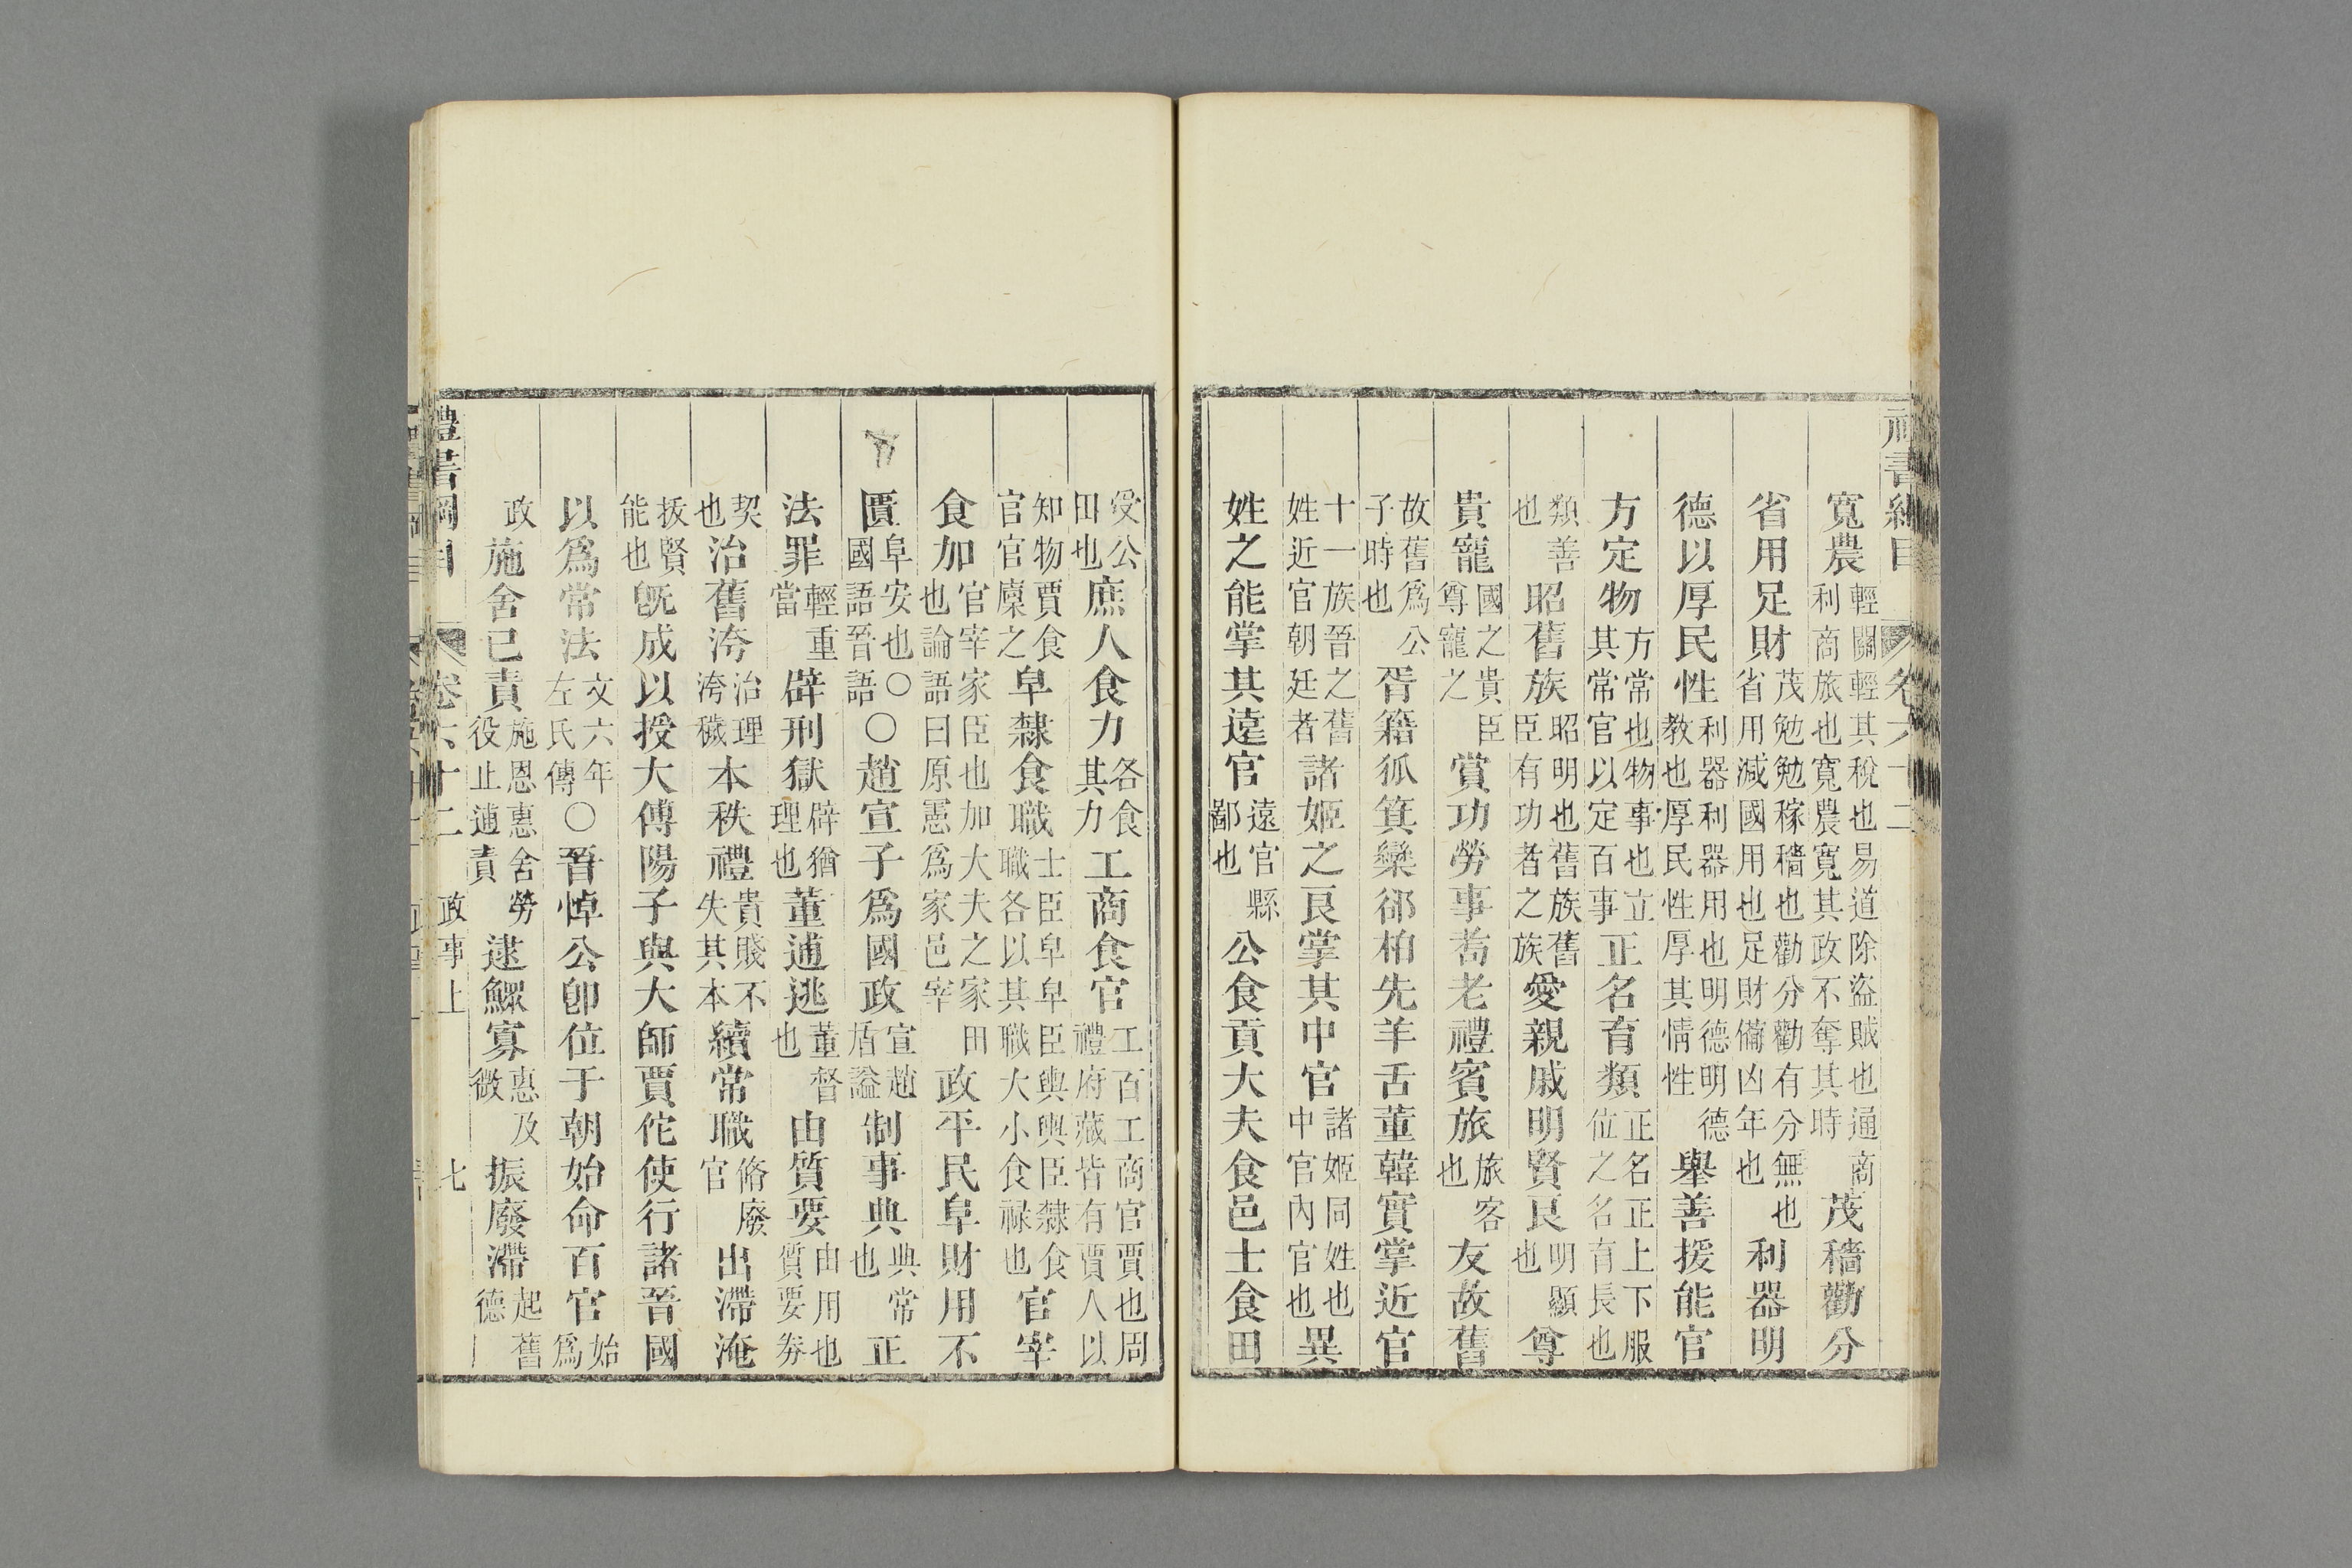 寬農輕關輕其稅也易道除盜賊也通商利商旅也寬農寬其政不奪其時茂穡勸分
省用足財茂勉勉稼穡也勸分勸有分無也省用減國用也足財備凶年也利器明
德以厚民性利器利器用也明德明德教也厚民性厚其情性舉善援能官
方定物方常也物事也立其常官以定百事正名育類正名正上下服位之名育長也
類善也昭舊族昭明也舊族舊臣有功者之族愛親戚明賢良明顯也尊
貴寵國之貴臣尊寵之賞功勞事耇老禮賓旅旅客也友故舊
故舊爲公子時也胥籍狐箕欒郤柏先羊舌董韓實掌近官
十一族晉之舊姓近官朝廷者諸姬之良掌其中官諸姬同姓也中官內官也異
姓之能掌其遠官遠官縣鄙也公食貢大夫食邑士食田
受公田也庶人食力各食其力工商食官工百工商官賈也周禮府藏皆有賈人以
知物賈食官官廩之皁隸食職士臣皁皁臣輿輿臣隸食職各以其職大小食祿也官宰
食加官宰家臣也加大夫之家田也論語曰原憲爲家邑宰政平民阜財用不
匱阜安也○國語晉語○趙宣子爲國政宣趙盾謚制事典典常也正
法罪輕重當辟刑獄辟猶理也董逋逃董督也由質要由用也質要券
契也治舊洿治理洿穢本秩禮貴賤不失其本續常職脩廢官出滯淹
拔賢能也旣成以授大傅陽子與大師賈佗使行諸晉國
以爲常法文六年左氏傳○晉悼公卽位于朝始命百官始爲
政施舍已責施恩惠舍勞役止逋責逮鰥寡惠及微振廢滯起舊德
禮書綱目 卷六十二 政事上 七